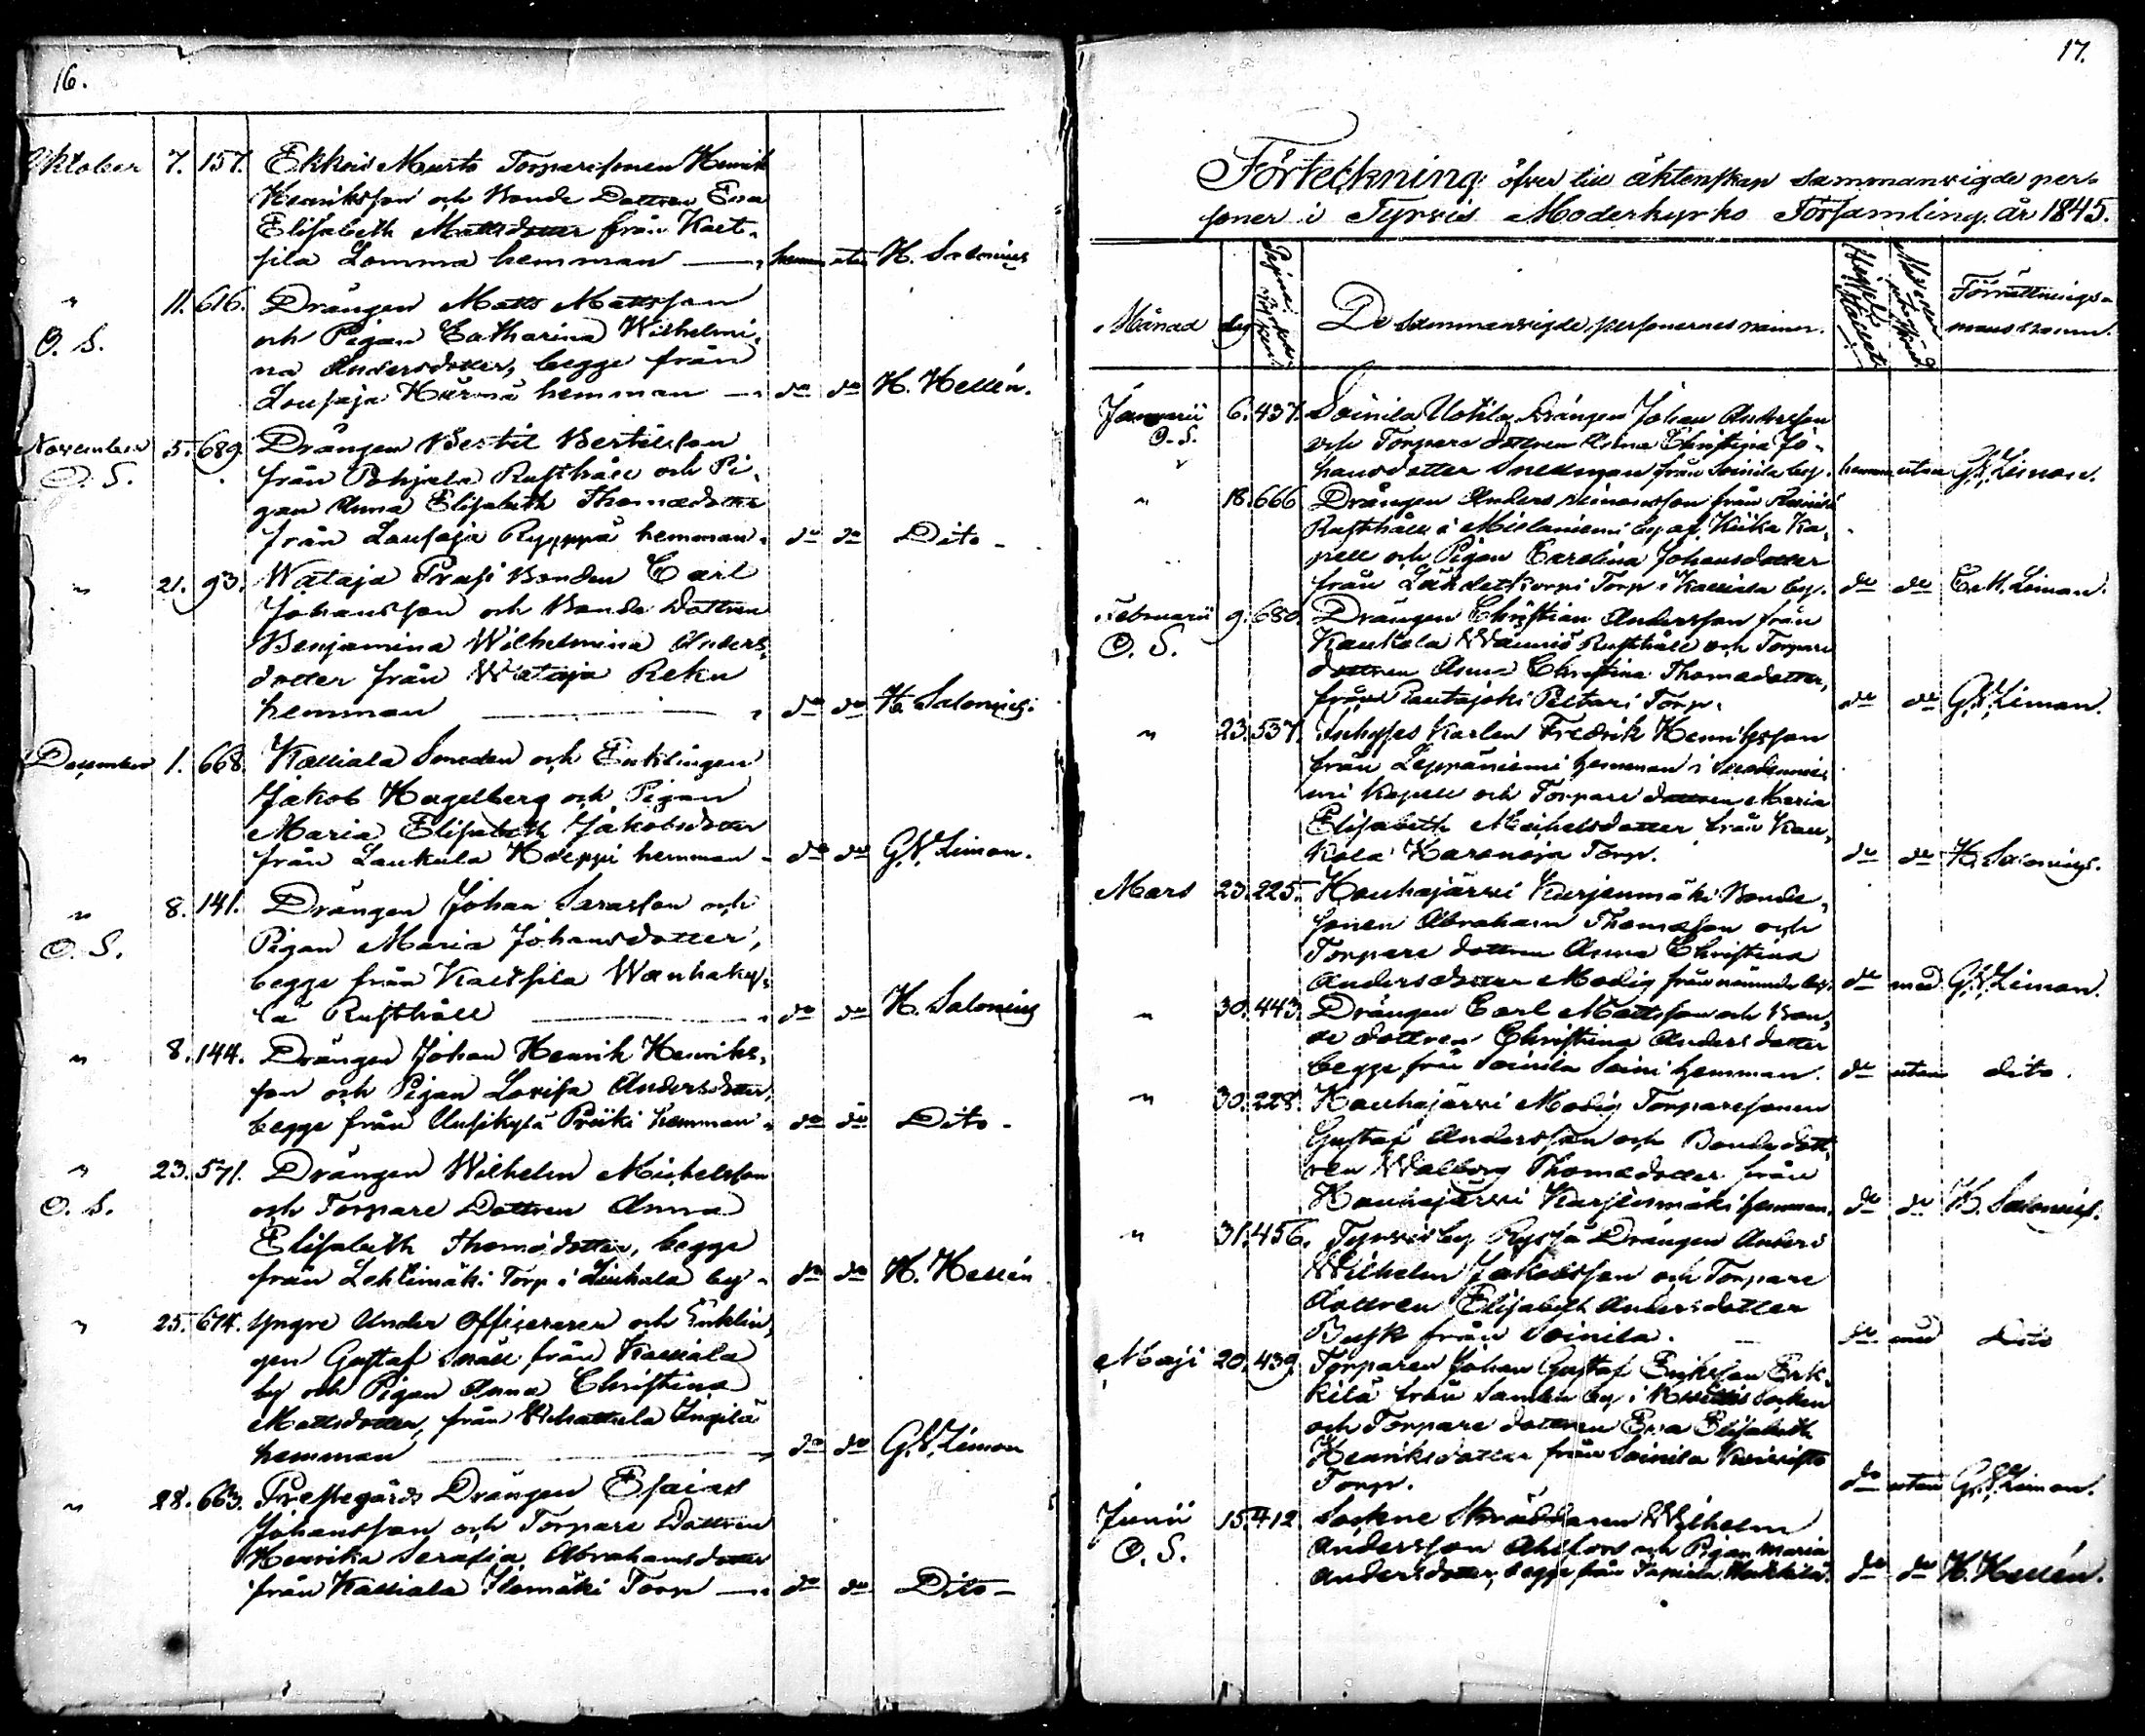 16.
Oktober 7. 157. Ekkois Murto Torparesonen Henrik
Henriksson och Bonde Dottren Eva
Elisabeth Mattsdotter från Kaet-
sila Lomma hemman — hemma utan H. Salonius
" 11. 616. Drängen Matts Mattsson
O. S. och Pigan Catharina Wilhelmi-
na Andersdotter, begge från
Lousaja Härmä hemman — do do H. Hellén.
November 5. 689. Drängen Bertil Bertilsson
O. S. från Pohjala Rusthåll och Pi-
gan Anna Elisabeth Thomædotter
från Lousaja Ryyppä hemman. do do Dito -
" 21. 93. Wataja Frasi Bonden Carl
Johansson och Bonde Dottren
Benjamina Wilhelmina Anders-
dotter från Wataja Reku
hemman — do do H. Salonius.
December 1. 668. Kalliala Smeden och Enklingen
Jakob Hagelberg och Pigan
Maria Elisabeth Jakobsdotter
från Laukula Hoeppi hemman - do do G. W. Liman.
" 8. 141. Drängen Johan Sarasson och
O. S. Pigan Maria Johansdotter,
begge från Kaetsila Wanhaky-
lä Rusthåll — do do H. Salonius
" 8. 144. Drängen Johan Henrik Henriks-
son och Pigan Lovisa Andersdotter,
begge från Ausikylä Priiki hemman - do do Dito -
" 23. 571. Drängen Wilhelm Michelsson
O. S. och Torpare Dottren Anna
Elisabeth Thomædotter, begge
från Lehtimäki Torp i Liuhala by - do do H. Hellén
" 25. 674. Yngre Under Officeraren och Enklin-
gen Gustaf Snäll från Kalliala
by och Pigan Anna Christina
Mattsdotter, från Wehattula Yngilä
hemman — do do G. W. Liman
" 28. 663. Prestegårds Drängen Esaias
Johansson och Torpare Dottren
Henrika Serafia Abrahamsdotter
från Kalliala Ilomäki Torp — do do Dito -
17.
Förteckning öfver till äktenskap sammanvigde per-
soner i Tyrvis Moderkyrko Församling år 1845.
Månad dag Pagina i De sammanvigde personernes namn. Förrättnings-
mans namn.
Januarii 6. 437. Soinila Uotila Drängen Johan Andersson
O. S. och Torpare dottren Anna Christina Jo-
hansdotter Snellman från Soinila by. hemma utan G. W. Liman.
" 18. 666. Drängen Anders Simonsson från
Rusthåll i by af Kiika Ka-
pell och Pigan Carolina Johansdotter
från Lähdetkorpi Torp i Kalliala by. do do C. M. Liman.
Februarii 9. 680. Drängen Christian Andersson från
O. S. Kaukola Wänniö Rusthåll och Torpare
dottren Anna Christina Thomædotter,
från Rautajoki Peltari Torp. do do G. W. Liman.
" 23. 537. Inhyses Karlen Fredrik Henriksson
från Leppäniemi hemman i Suodennie-
mi Kapell och Torpare dottren Maria
Elisabeth Michelsdotter från Kau-
kola Haranoja Torp. do do H. Salonius.
Mars 23. 225. Houhajärvi Kurjenmäki Bonde-
sonen Abraham Thomæson och
Torpare dottren Anna Christina
Andersdotter Modig från nämnde by. do med G. W. Liman.
" 30. 443. Drängen Carl Mattsson och Bon-
de dottren Christina Andersdotter
begge från Soinila Soini hemman. do utan dito.
" 30. 228. Houhajärvi Modig Torparesonen
Gustaf Andersson och Bondedott-
ren Walborg Thomædotter från
Houhajärvi Kurjenmäki hemman. do do H. Salonius.
" 31. 456. Tyrvisby Ryssä Drängen Anders
Wilhelm Jakobsson och Torpare
dottren Elisabeth Andersdotter
Busk från Soinila. do med Dito
Maji 20. 439. Torparen Johan Gustaf Eriksson Erk-
kilä från by i Socken
och Torpare dottren Eva Elisabeth
Henriksdotter från Soinila
Torp. do utan G. W. Liman.
Junii 15. 412. Sockne Skräddaren Wilhelm
O. S. Andersson Ahlfors och Pigan Maria
Andersdotter, begge från do do H. Hellén.